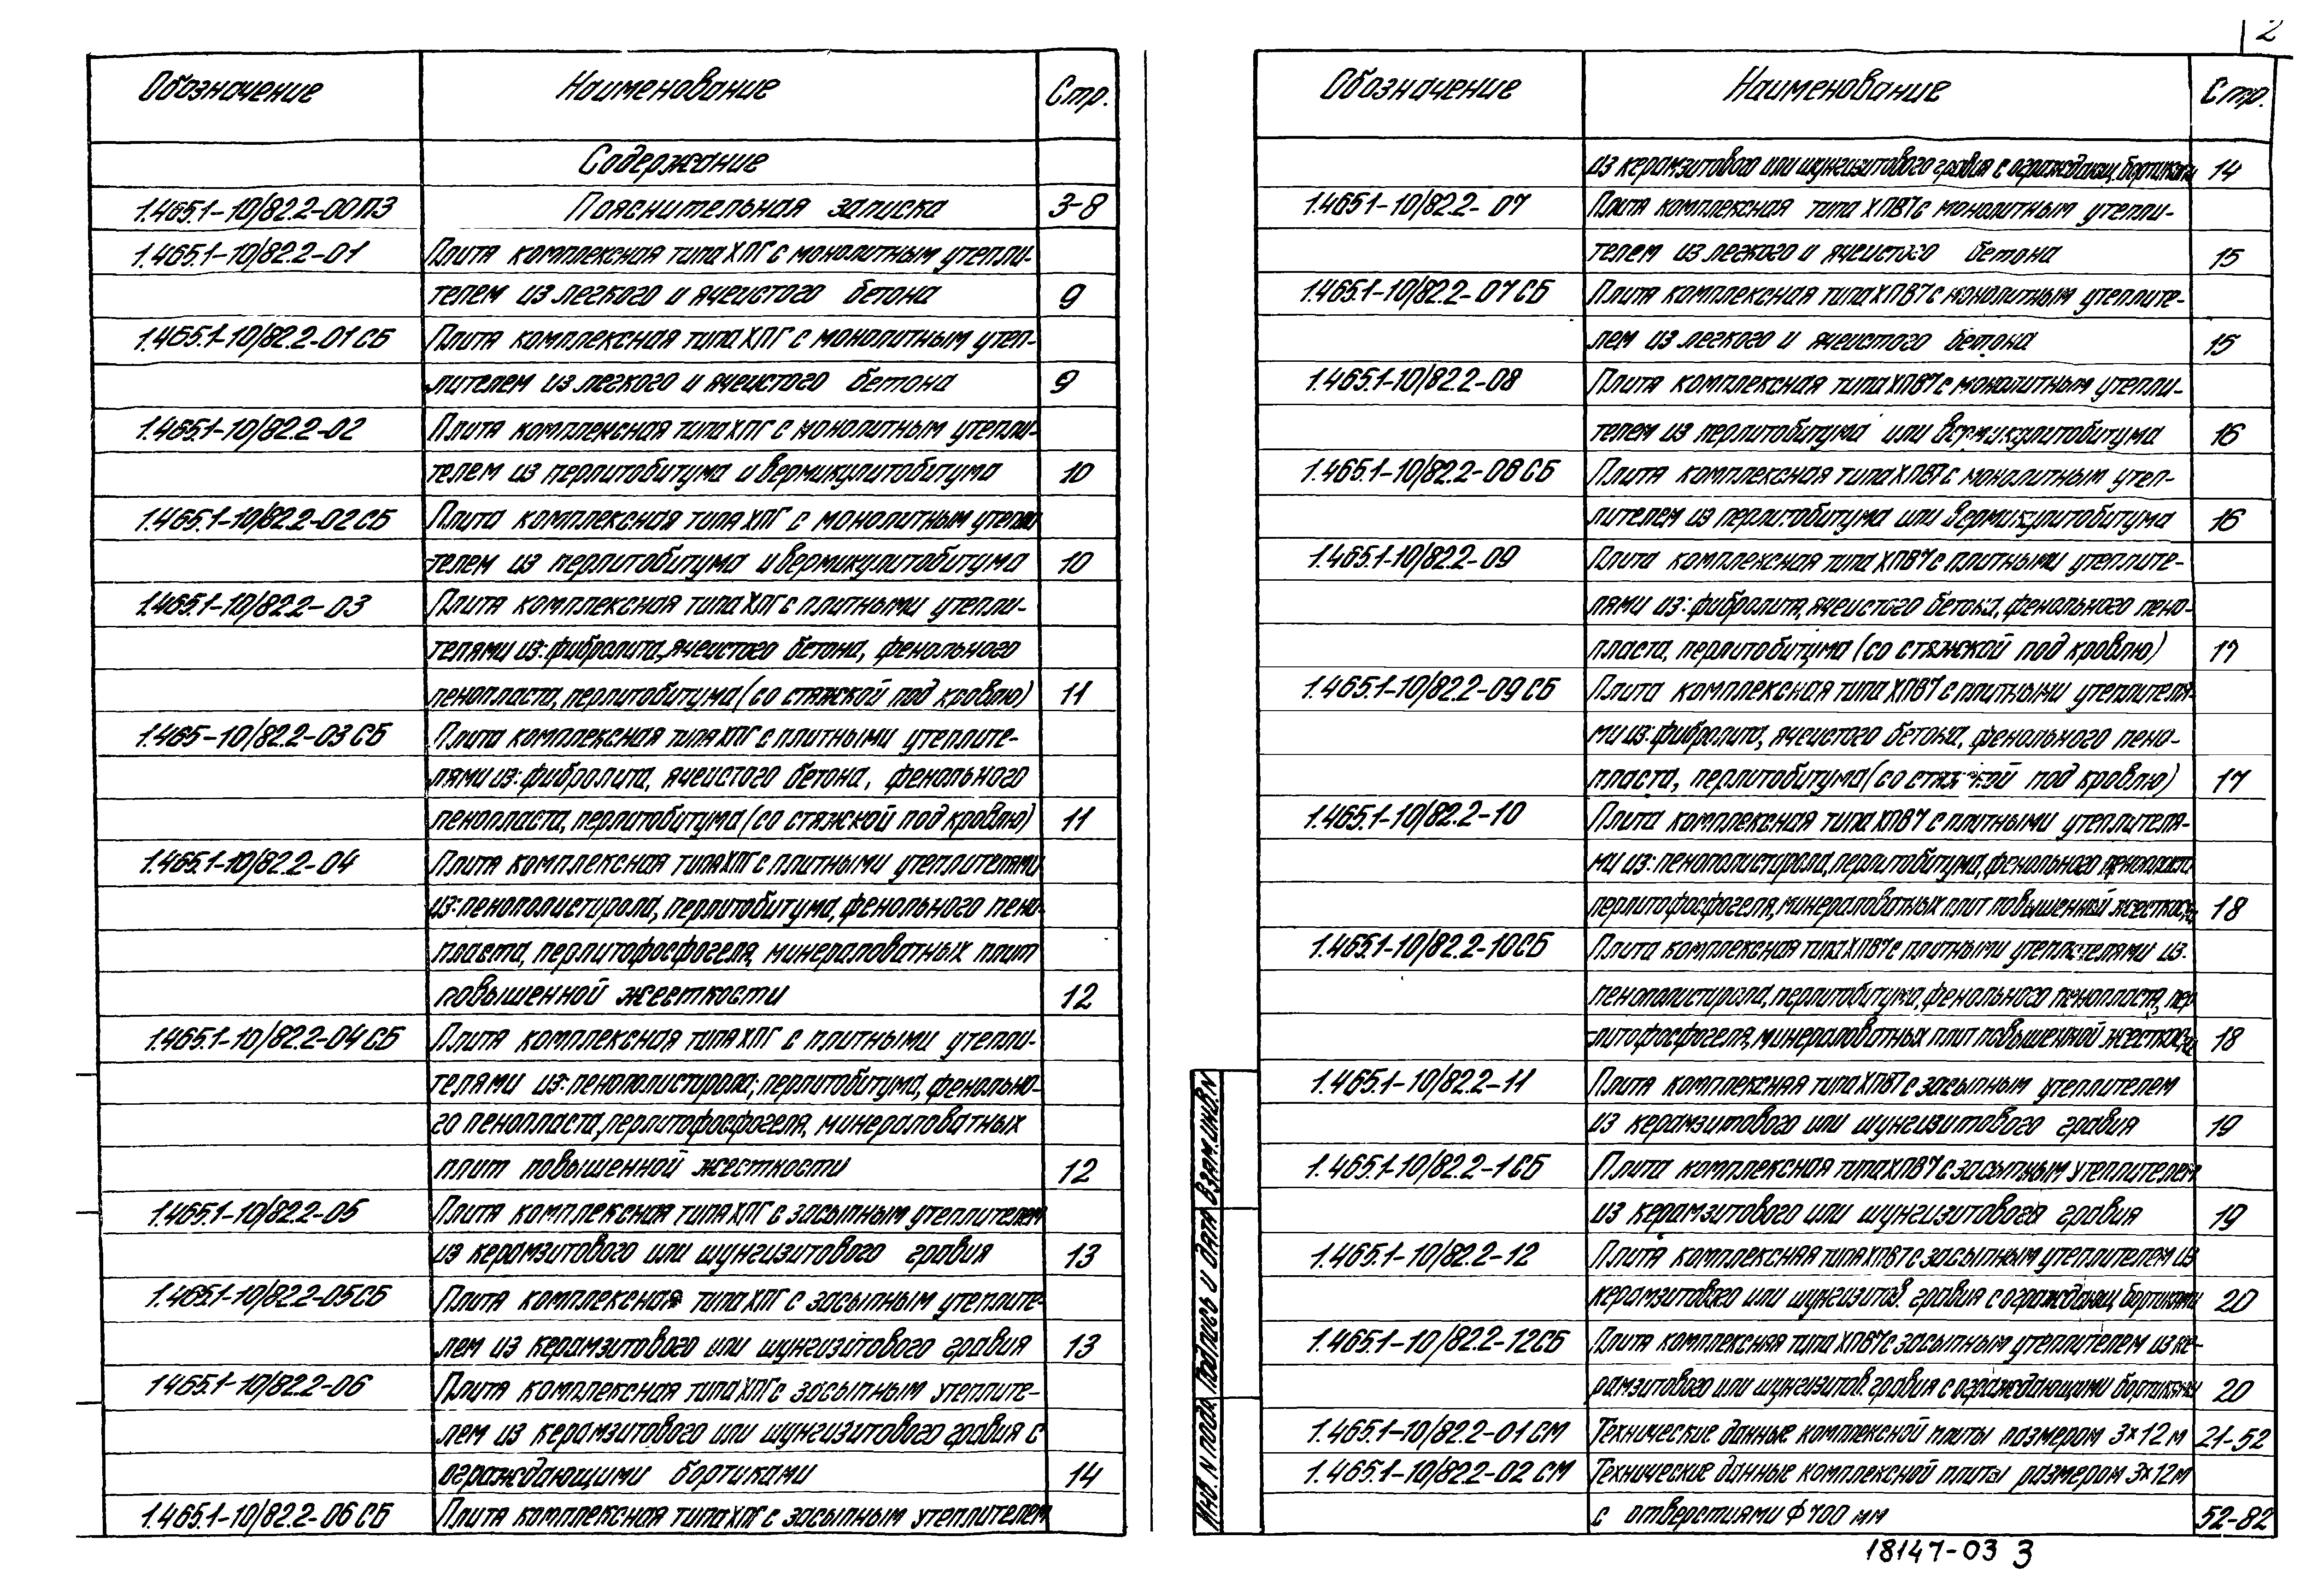 2
Обозначение Наименование Стр.
Содержание
1.465.1-10/82.2-00ПЗ Пояснительная записка 3-8
1.465.1-10/82.2-01 Плита комплексная типа ХПГ с монолитным утепли-
телем из легкого и ячеистого бетона 9
1.465.1-10/82.2-01СБ Плита комплексная типа ХПГ с монолитным утеп-
лителем из легкого и ячеистого бетона 9
1.465.1-10/82.2-02 Плита комплексная типа ХПГ с монолитным утепли-
телем из перлитобитума и вермикулитобитума 10
1.465.1-10/82.2-02СБ Плита комплексная типа ХПГ с монолитным утепли
телем из перлитобитума и вермикулитобитума 10
1.465.1-10/82.2-03 Плита комплексная типа ХПГ с плитными утепли-
телями из: фибролита, ячеистого бетона, фенольного
пенопласта, перлитобитума (со стяжкой под кровлю) 11
1.465-10/82.2-03СБ Плита комплексная типа ХПГ с плитными утеплите-
лями из: фибролита, ячеистого бетона, фенольного
пенопласта, перлитобитума (со стяжкой под кровлю) 11
1.465.1-10/82.2-04 Плита комплексная типа ХПГ с плитными утеплителями
из: пенополистирола, перлитобитума, фенольного пено-
пласта, перлитофосфогеля, минераловатных плит
повышенной жесткости 12
1.465.1-10/82.2-04СБ Плита комплексная типа ХПГ с плитными утепли-
телями из: пенополистирола; перлитобитума, фенольно-
го пенопласта, перлитофосфогеля, минераловатных
плит повышенной жесткости 12
1.465.1-10/82.2-05 Плита комплексная типа ХПГ с засыпным утеплителем
из керамзитового или шунгизитового гравия 13
1.465.1-10/82.2-05СБ Плита комплексная типа ХПГ с засыпным утеплите-
лем из керамзитового или шунгизитового гравия 13
1.465.1-10/82.2-06 Плита комплексная типа ХПГ с засыпным утеплите-
лем из керамзитового или шунгизитового гравия с
ограждающими бортиками 14
1.465.1-10/82.2-06СБ Плита комплексная типа ХПГ с засыпным утеплителем
Обозначение Наименование Стр.
из керамзитового или шунгизитового гравия с ограждающ. бортиками 14
1.465.1-10/82.2-07 Плита комплексная типа ХПВ7 с монолитным утепли-
телем из легкого и ячеистого бетона 15
1.465.1-10/82.2-07СБ Плита комплексная типа ХПВ7 с монолитным утеплите-
лем из легкого и ячеистого бетона 15
1.465.1-10/82.2-08 Плита комплексная типа ХПВ7 с монолитным утепли-
телем из перлитобитума или вермикулитобитума 16
1.465.1-10/82.2-08СБ Плита комплексная типа ХПВ7 с монолитным утеп-
лителем из перлитобитума или вермикулитобитума 16
1.465.1-10/82.2-09 Плита комплексная типа ХПВ7 с плитными утеплите-
лями из: фибролита, ячеистого бетона, фенольного пено-
пласта, перлитобитума (со стяжкой под кровлю) 17
1.465.1-10/82.2-09СБ Плита комплексная типа ХПВ7 с плитными утеплителя-
ми из: фибролита, ячеистого бетона, фенольного пено-
пласта, перлитобитума (со стяжкой под кровлю) 17
1.465.1-10/82.2-10 Плита комплексная типа ХПВ7 с плитными утеплителя-
ми из: пенополистирола, перлитобитума, фенольного пенопласта
перлитофосфогеля, минераловатных плит повышенной жесткости 18
1.465.1-10/82.2-10СБ Плита комплексная типа ХПВ7 с плитными утеплителями из:
пенополистирола, перлитобитума, фенольного пенопласта, пер
-литофосфогеля, минераловатных плит повышенной жесткости 18
1.465.1-10/82.2-11 Плита комплексная типа ХПВ7 с засыпным утеплителем
из керамзитового или шунгизитового гравия 19
1.465.1-10/82.2-1СБ Плита комплексная типа ХПВ7 с засыпным утеплителем
из керамзитового или шунгизитового гравия 19
1.465.1-10/82.2-12 Плита комплексная типа ХПВ7 с засыпным утеплителем из
керамзитового или шунгизитов. гравия с ограждающ. бортиками 20
1.465.1-10/82.2-12СБ Плита комплексная типа ХПВ7 с засыпным утеплителем из ке-
рамзитового или шунгизитов. гравия с ограждающими бортиками 20
1.465.1-10/82.2-01СМ Технические данные комплексной плиты размером 3×12м 21-52
1.465.1-10/82.2-02СМ Технические данные комплексной плиты размером 3×12м
с отверстиями Ф 700 мм 52-82
Инв. N подл. Подпись и дата Взам. инв. N
18147-03 3